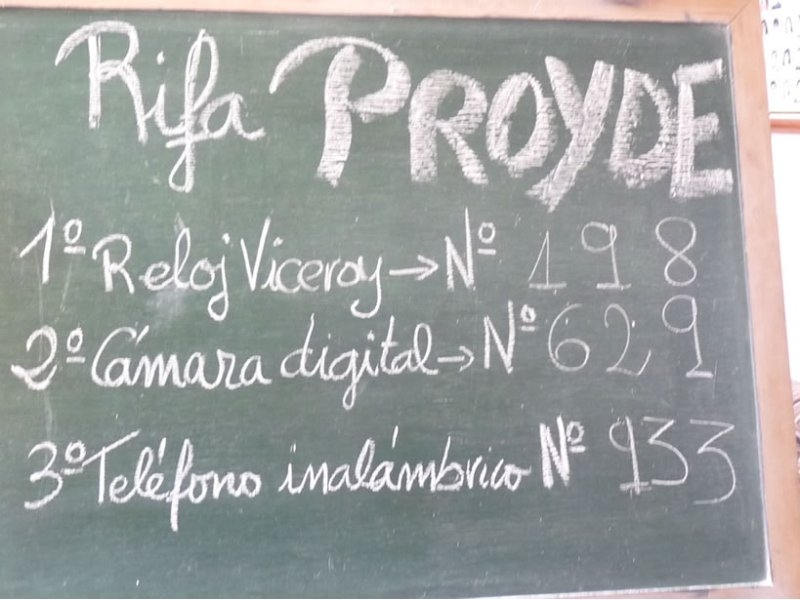 Rifa PROYDE
1º Reloj Viceroy → Nº 198
2º Cámara digital → Nº 629
3º Teléfono inalámbrico Nº 933